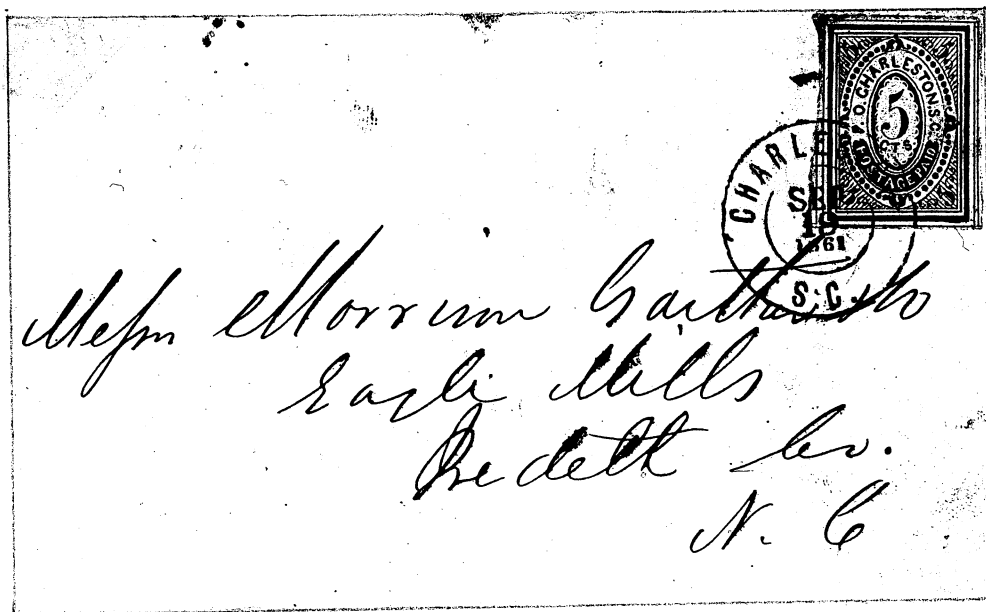 P. O. CHARLESTON, S.C.
5
CTS.
POSTAGE PAID
CHARLE
SEP
19
1861
S.C.
Messrs Morrison Gaither & Co
Eagle Mills
Iredell Co.
N. C